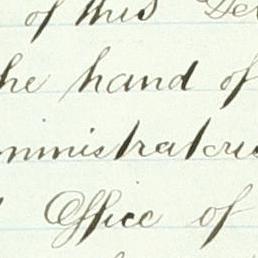 of this De
he hand of
ministrator
Office of